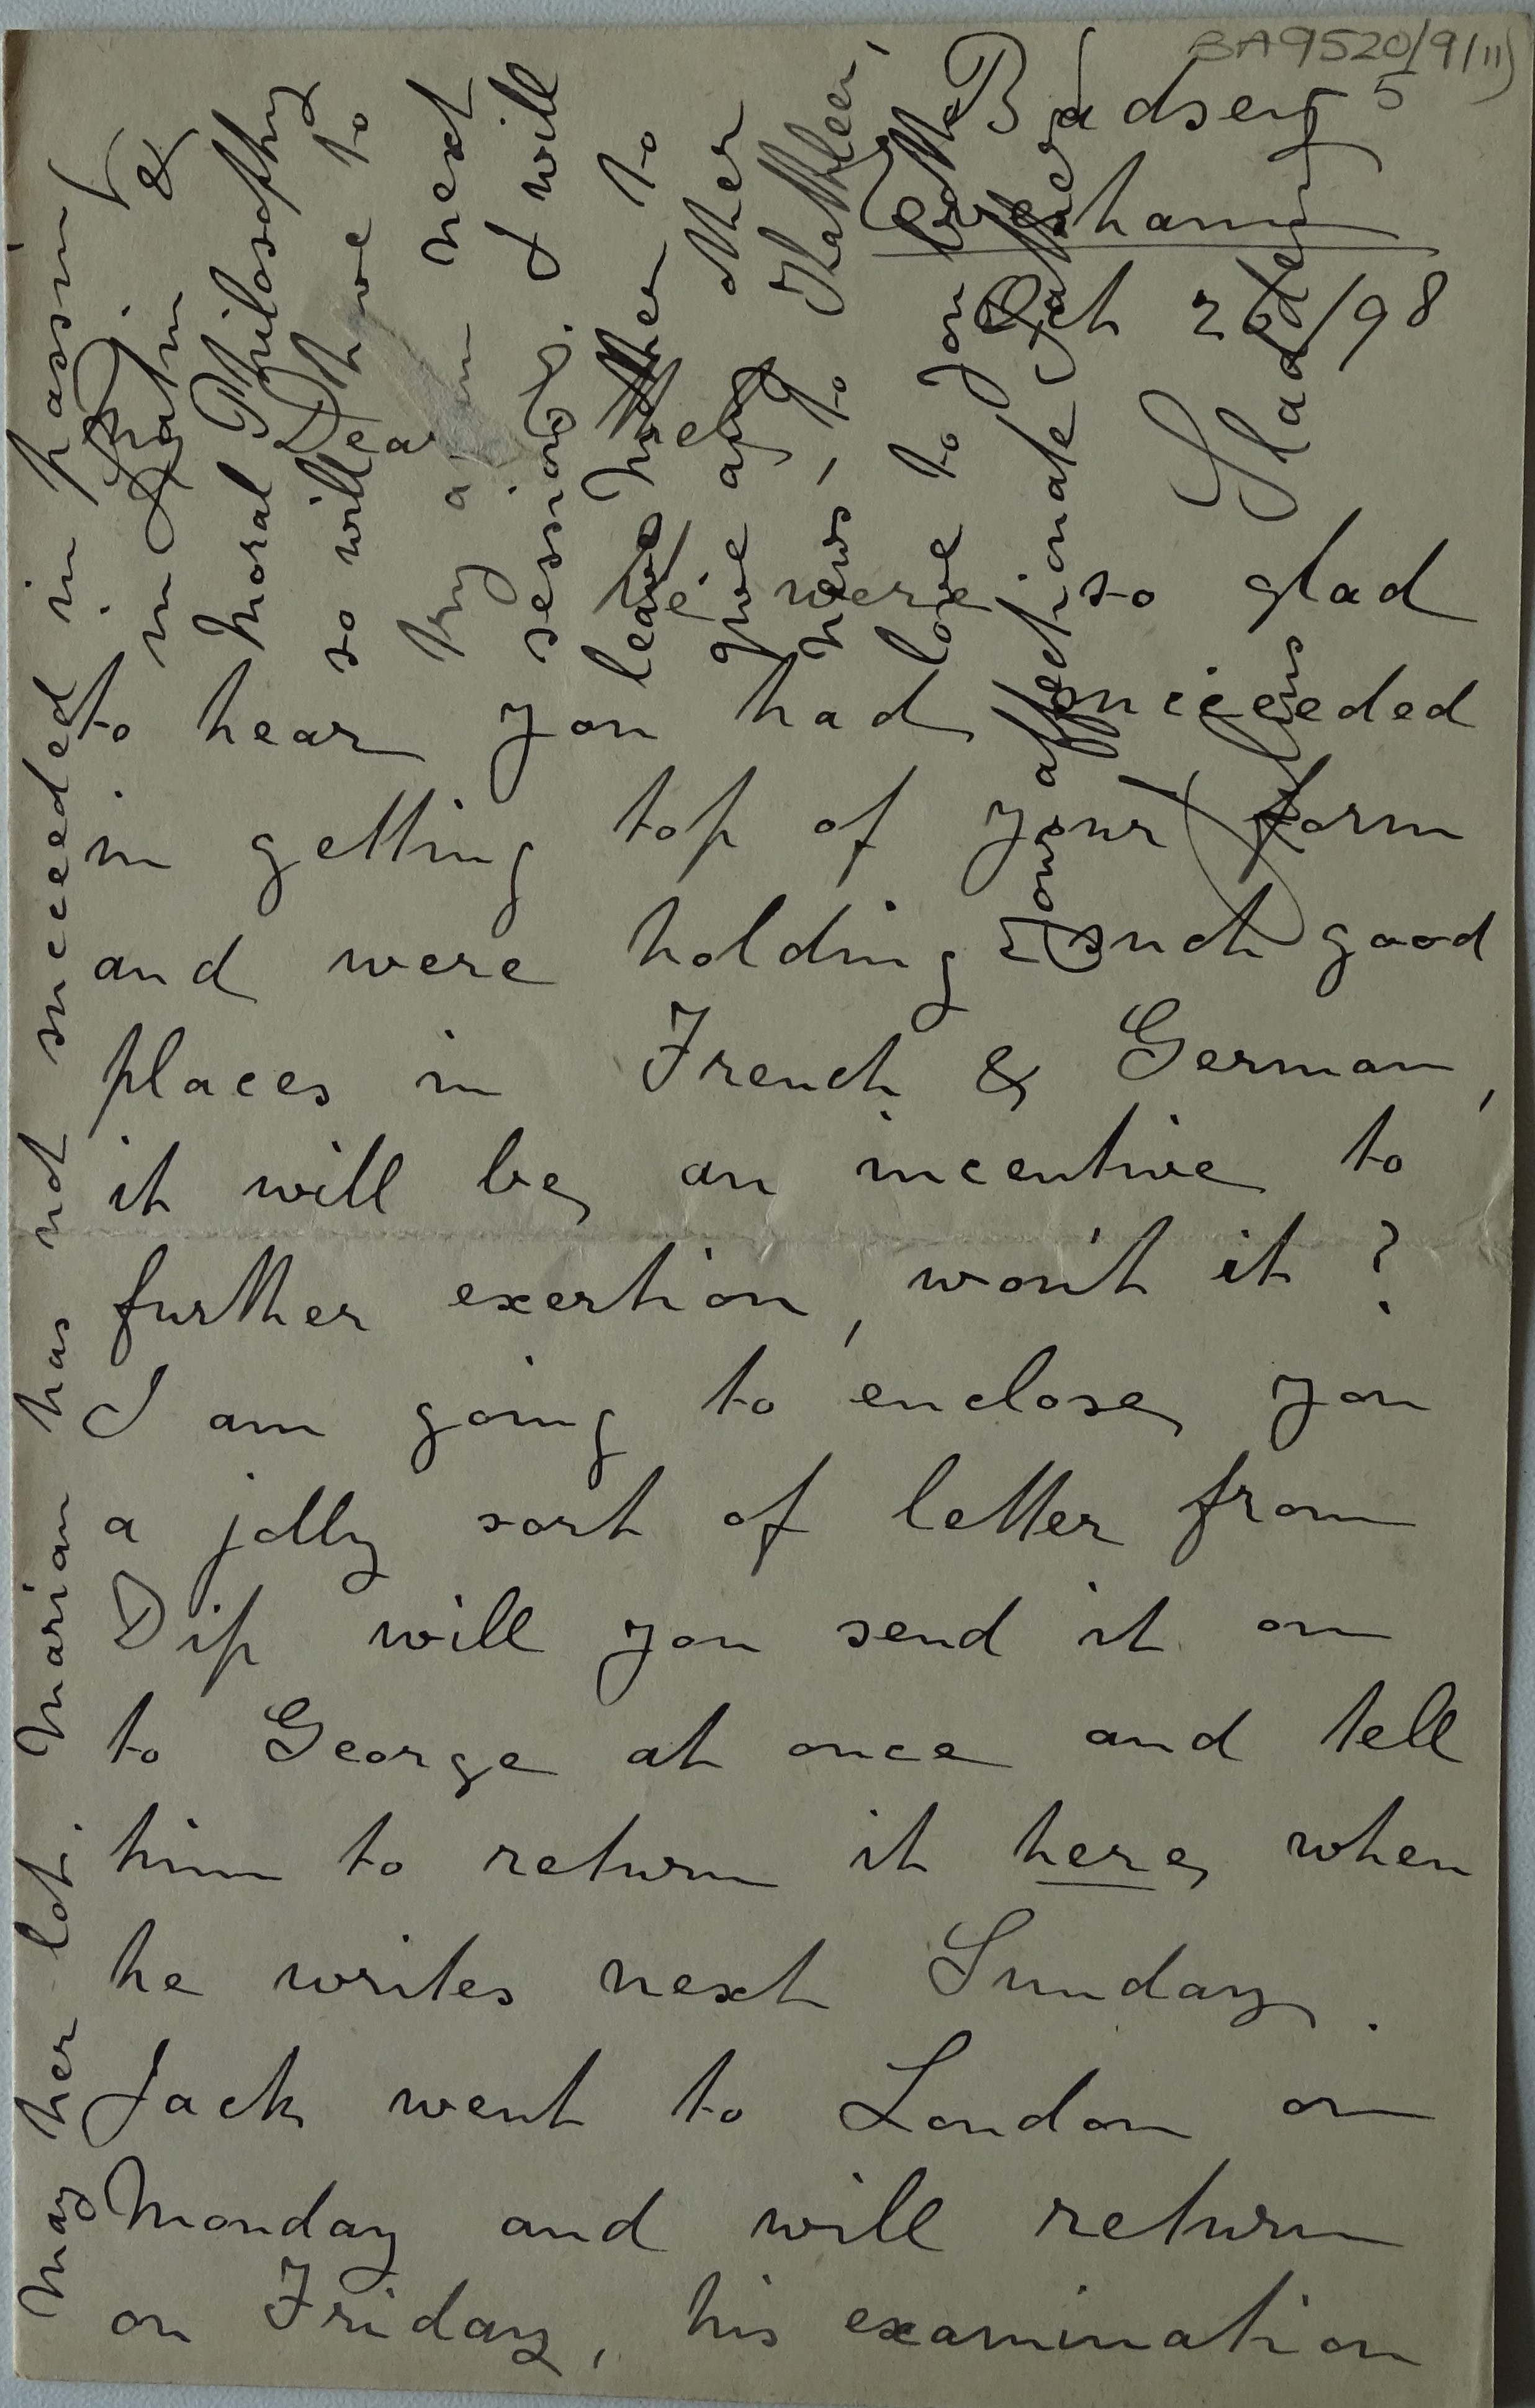 BA9520/9/11)5
Badsey
Evesham
Oct 26/98
Dear
We were so glad
to hear you had succeeded
in getting top of your form
and were holding such good
places in French & German,
it will be an incentive to
further exertion, won't it?
I am going to enclose you
a jolly sort of letter from
Dip will you send it on
to George at once and tell
him to return it here when
he writes next Sunday.
Jack went to London on
Monday and will return
on Friday, his examination
may her lot. Marian has not succeeded in passing
in Latin &
Moral Philosophy
so will have to
try again next
session. I will
leave Mother to
give any other
news, to Kathleen,
love to you both
Your affectionate Father
Julius Sladden